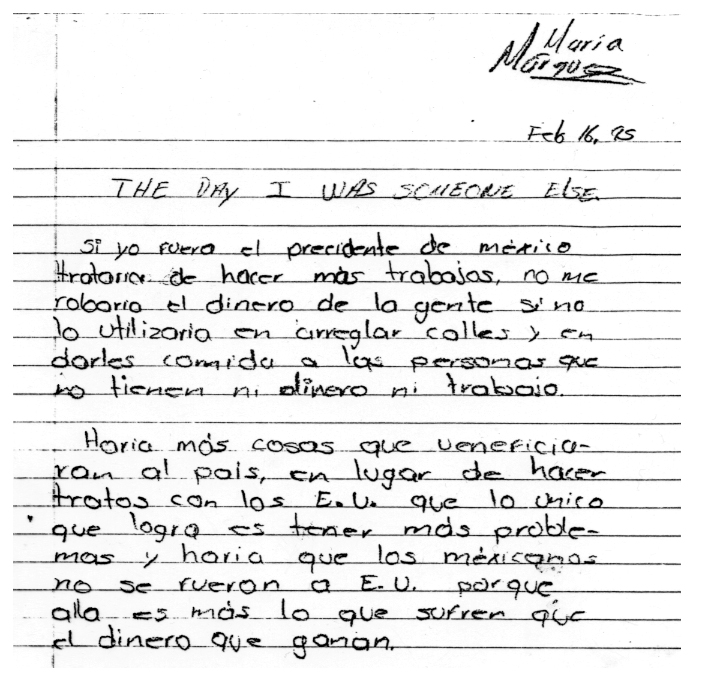 Maria
Márquez
Feb 16, 95
THE DAY I WAS SOMEONE ELSE.
Si yo fuera el precidente de méxico
trataria de hacer más trabajos, no me
robaria el dinero de la gente si no
lo utilizaria en arreglar calles y en
darles comida a las personas que
no tienen ni dinero ni trabajo.
Haria más cosas que veneficia-
ran al pais, en lugar de hacer
tratos con los E.U. que lo unico
que logra es tener más proble-
mas y haria que los méxicanos
no se fueran a E.U. porque
alla es más lo que sufren que
el dinero que ganan.